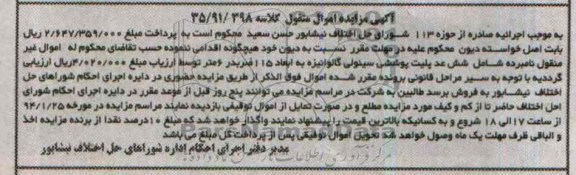 آگهی مزایده اموال منقول کلاسه ۳۵/۹۱/۳۹۸
به موجب اجرائیه صادره از حوزه ۱۱۳ شورای حل اختلاف نیشابور حسن سعید محکوم است به پرداخت مبلغ ۲/۶۴۷/۳۵۹/۰۰۰ ریال
بابت اصل خواسته دیون محکوم علیه در مهلت مقرر نسبت به دیون خود هیچگونه اقدامی ننموده حسب تقاضای محکوم له اموال غیر
منقول نامبرده شامل شش عد پلیت پوششی سینوئی گالوانیزه به ابعاد ۱۱۵ضربدر ۶متر توسط ارزیاب مبلغ ۴/۰۲۰/۰۰۰ریال ارزیابی
گردیده با توجه به سیر مراحل قانونی پرونده مقرر شده اموال فوق الذکر از طریق مزایده حضوری در دایره اجرای احکام شوراهای حل
اختلاف نیشابور به فروش برسد طالبین به شرکت در مراسم مزایده می توانند پنج روز قبل از موعد مقرر در دایره اجرای احکام شورای
احل اختلاف حاضر تا از کم و کیف مورد مزایده مطلع و در صورت تمایل از اموال توقیفی بازدیده نمایند مراسم مزایده در مورخه ۹۴/۱/۲۵
از ساعت ۱۷الی ۱۸ شروع و به کسانیکه بالاترین قیمت را پیشنهاد نمایند واگذار خواهد شد که مبلغ ۱۰درصد نقدا از برنده مزایده اخذ
و الباقی ظرف مهلت یک ماه وصول خواهد شد تحویل اموال توقیفی پس از پرداخت کل مبلغ می باشد
مدیر دفتر اجرای احکام اداره شوراهای حل اختلاف نیشابور